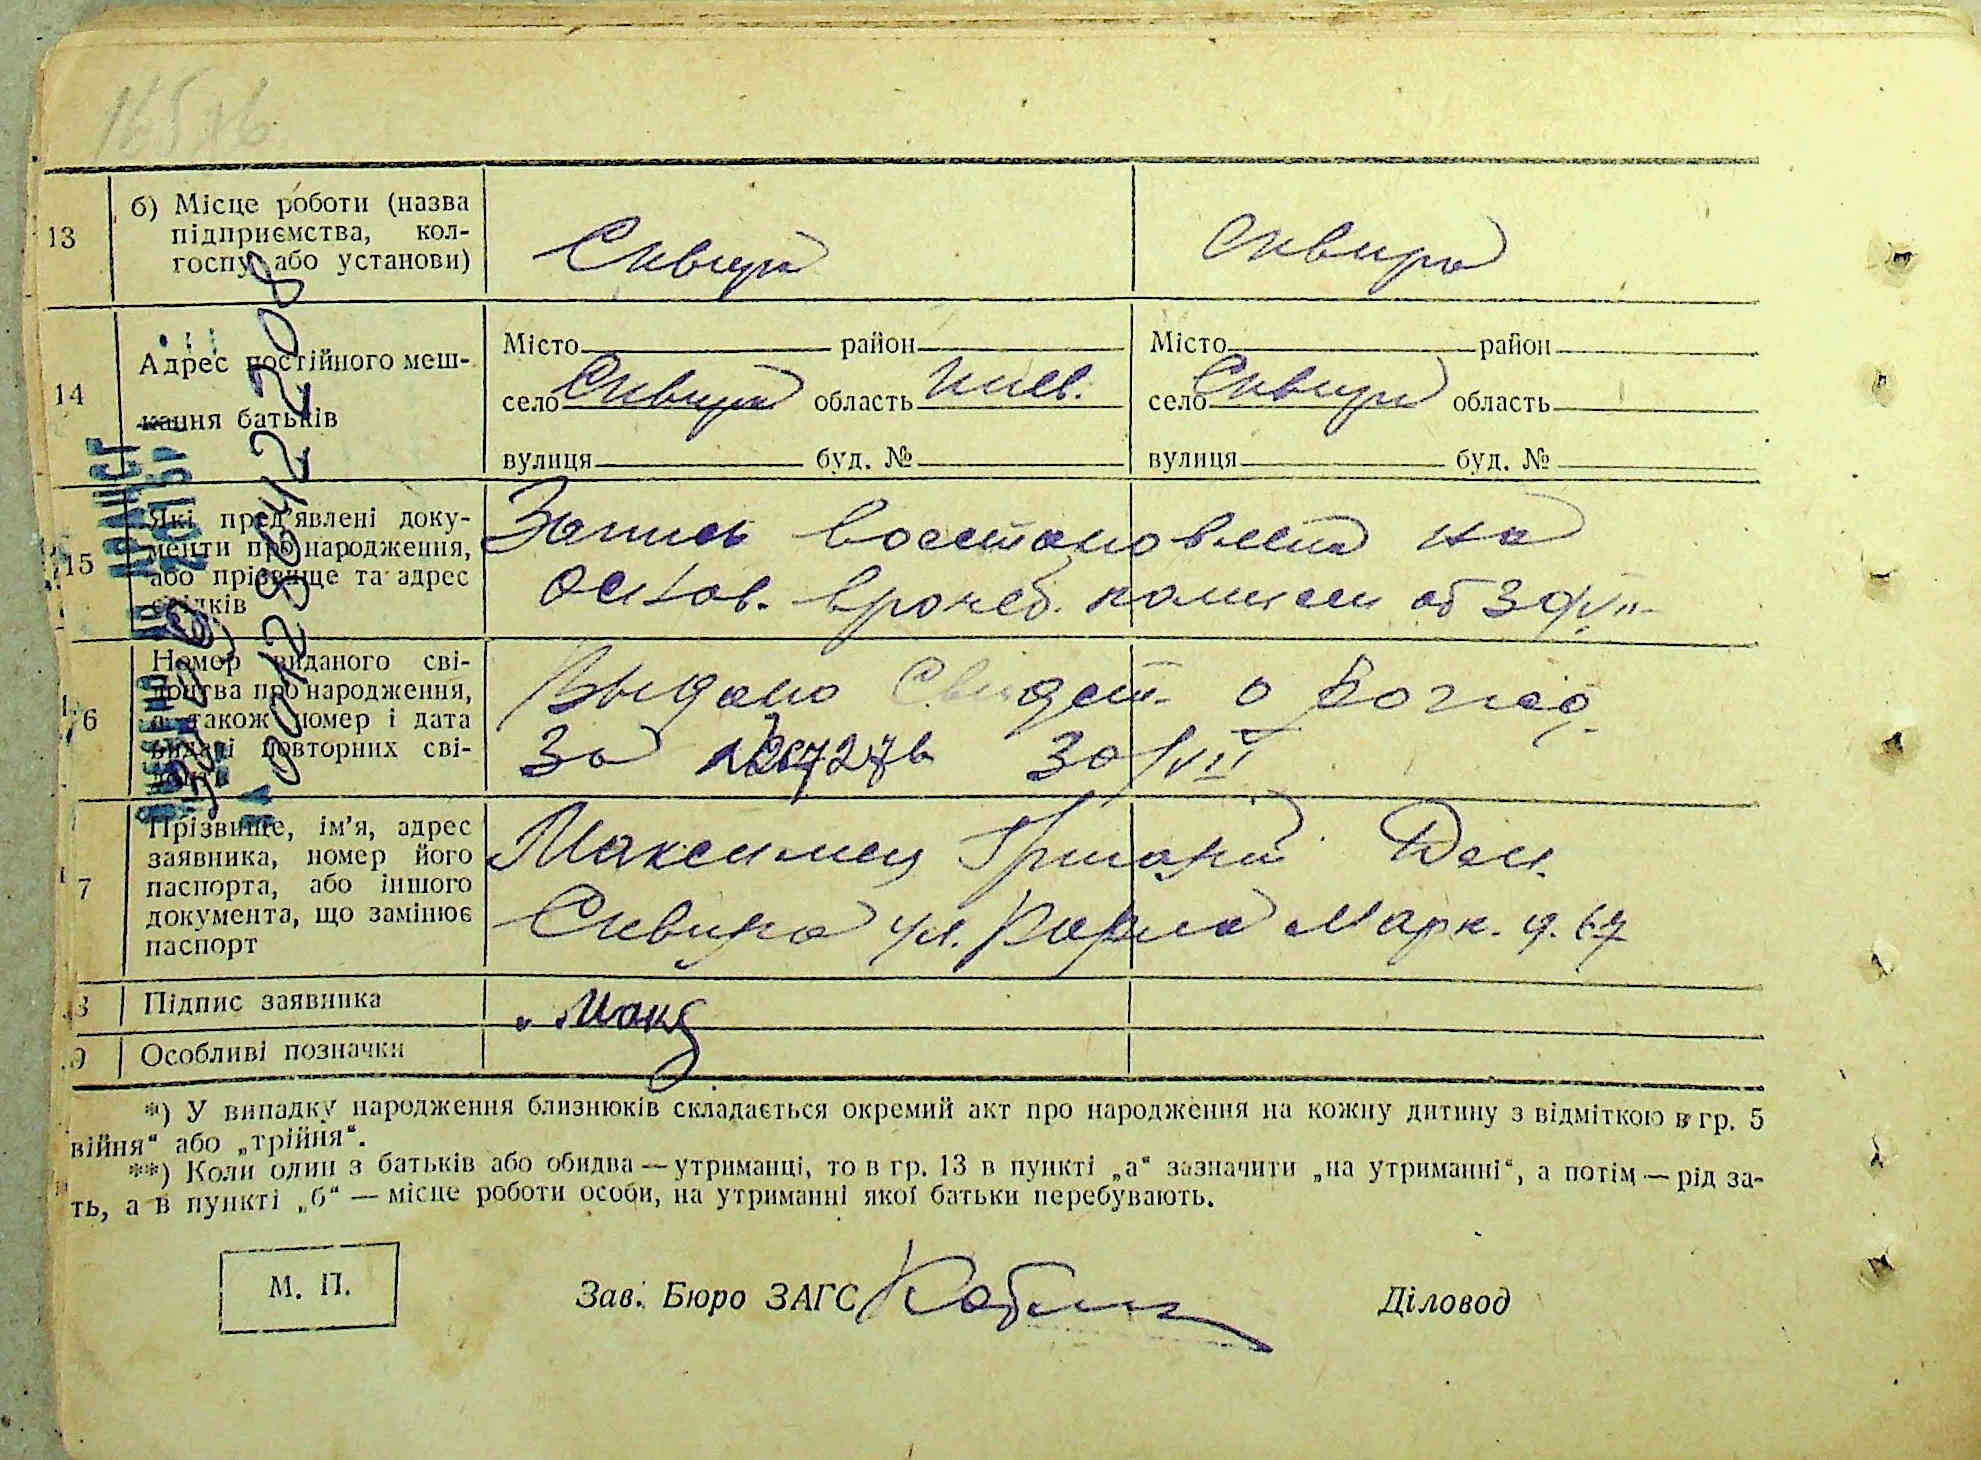 13
б) Місце роботи (назва
підприємства, кол-
госпу або установи)
Сквира
Сквира
14
Адрес постійного меш-
кання батьків
Місто район
село Сквира область Киев.
вулиця буд. №
Місто район
село Сквира область
вулиця буд. №
15
Які пред'явлені доку-
менти про народження,
або прізвище та адрес
свідків
Запись восстановлена на
основ. врачеб. комиссии от 30/VII
6
Номер виданого сві-
доцтва про народження,
а також номер і дата
видачі повторних сві-
доцтв
Выдано Свидет. о рожд.
За № 30/VII
7
Прізвище, ім'я, адрес
заявника, номер його
паспорта, або іншого
документа, що замінює
паспорт
Максимец Григорий Дем.
Сквира ул. Карла Марк. д. 67
8
Підпис заявника
Макс
9
Особливі позначки
*) У випадку народження близнюків складається окремий акт про народження на кожну дитину з відміткою в гр. 5
війня“ або „трійня“.
**) Коли один з батьків або обидва — утриманці, то в гр. 13 в пункті „а“ зазначити „на утриманні“, а потім — рід за-
ть, а в пункті „б“ — місце роботи особи, на утриманні якої батьки перебувають.
М. П.
Зав. Бюро ЗАГС
Діловод